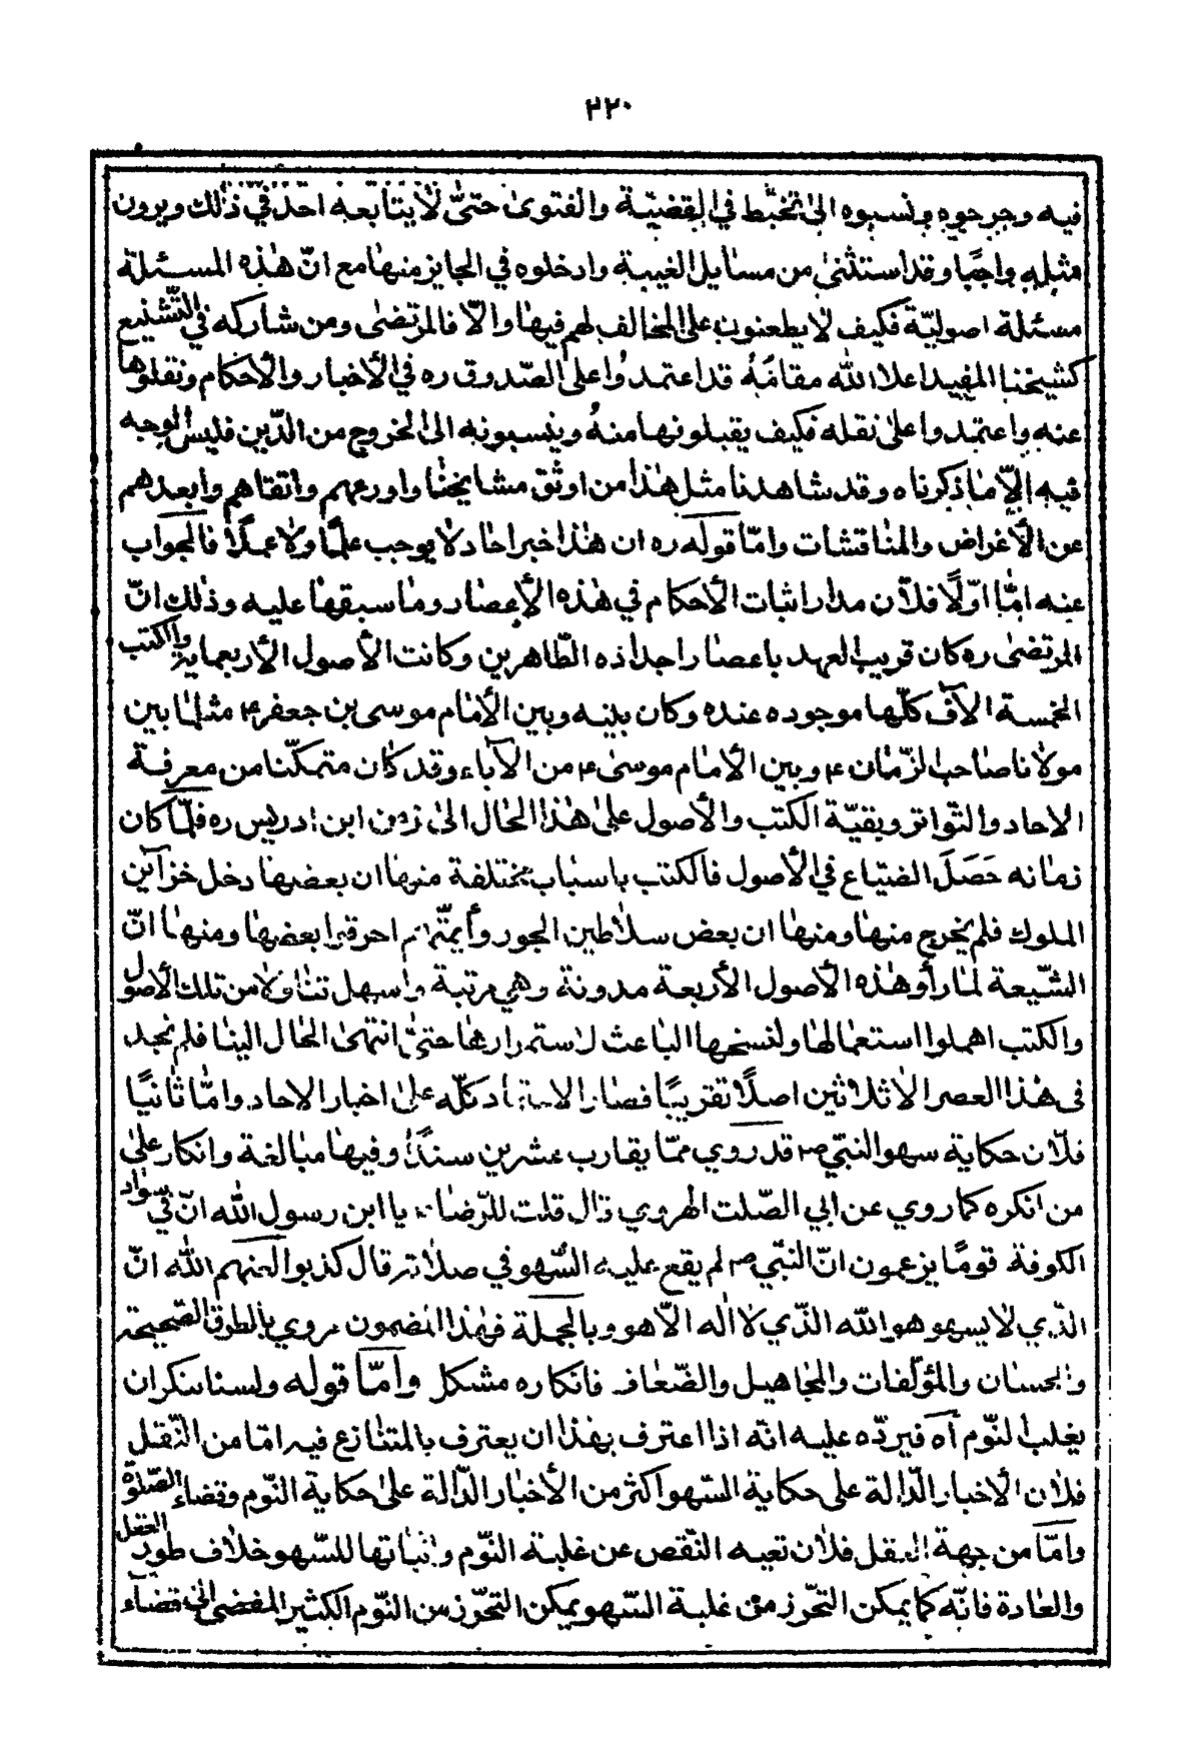 ٢٢٠
فيه وجرحوه ونسبوه الى تخبّط في القضيّة والفتوى حتىّ لا يتابعه احد في ذلك ويرون
مثله واجبًا وقد استثنى من مسايل الغيبة وادخلوه في الجايز منها مع انّ هذه المسئلة
مسئلة اصوليّة فكيف لا يطعنون على المخالف لهم فيها والّا فالمرتضى ومن شاركه في التّشنيع
كشيخنا المفيد اعلا الله مقامَهُ قد اعتمدوُا على الصّدوق ره في الأخبار والأحكام ونقلوها
عنه واعتمدوا على نقله فكيف يقبلونها منهُ وينسبونه الى الخروج من الدّين فليس الوجه
فيه إلّا ما ذكرناه وقد شاهدنا مثل هذا من اوثق مشايخنا واورعهم واتقاهم وابعدهم
عن الأغراض والمناقشات وامّا قوله ره ان هذا خبر احاد لا يوجب علمًا ولا عملًا فالجواب
عنه امّا اوّلًا فلأن مدار اثبات الأحكام في هذه الأعصار وما سبقها عليه وذلك انّ
المرتضى ره كان قريب العهد باعصار اجداده الطّاهرين وكانت الأصول الأربعماية والكتب
الخمسة الآف كلّها موجوده عنده وكان بينه وبين الأمام موسى بن جعفر ع مثلما بين
مولانا صاحب الزّمان ع وبين الأمام موسى ع من الآباء وقد كان متمكّنا من معرفة
الاحاد والتّواتر وبقيّة الكتب والأصول على هذا الحال الى زمن ابن ادريس ره فلمّا كان
زمانه حَصَلَ الضياع في الأصول فالكتب باسباب مختلفة منها ان بعضها دخل خزآين
الملوك فلم يخرج منها ومنها ان بعض سلاطين الجور وأيمّتهم احرقوا بعضها ومنها انّ
الشّيعة لمّا رأو هذه الأصول الأربعة مدونة وهي مرتبة واسهل تناولا من تلك الأصول
والكتب اهملوا استعمالها ولنسخها الباعث لاستمرارها حتىّ انتهى الحال الينا فلم نجد
فى هذا العصر الا ثلاثين اصلًا تقريبًا فصار الاستناد كلّه على اخبار الاحاد وامّا ثانيًا
فلأن حكاية سهو النبّي ص قد روي ممّا يقارب عشرين سندًا وفيها مبالغة وانكار على
من انكره كما روي عن ابي الصّلت الهروي قال قلت للرّضا ع يا ابن رسول الله انّ في سواد
الكوفة قومًا يزعمون انّ النبّي ص لم يقع عليه السّهو في صلاته قال كذبوا لعنهم الله انّ
الذّي لا يسهو هو الله الذّي لا اله الّا هو وبالجملة فهذا المضمون مروي بالطرق الصّحيحة
والحسان والمؤلّفات والمجاهيل والضّعاف فانكاره مشكل وامّا قوله ولسنا ننكر ان
يغلب النّوم آه فيردّه عليه انّه اذا اعترف بهذا ان يعترف بالمتنازع فيه امّا من النّقل
فلأن الأخبار الدّالة على حكاية السّهو اكثر من الأخبار الدّالة على حكاية النّوم وقضاء الصّلوة
وامّا من جهة العقل فلأن نعيه النّقص عن غلبة النّوم واثباتها للسّهو خلاف طور العقل
والعادة فانّه كما يمكن التحّرز من غلبة السّهو يمكن التحّرز من النّوم الكثير المفضي الى قضآء